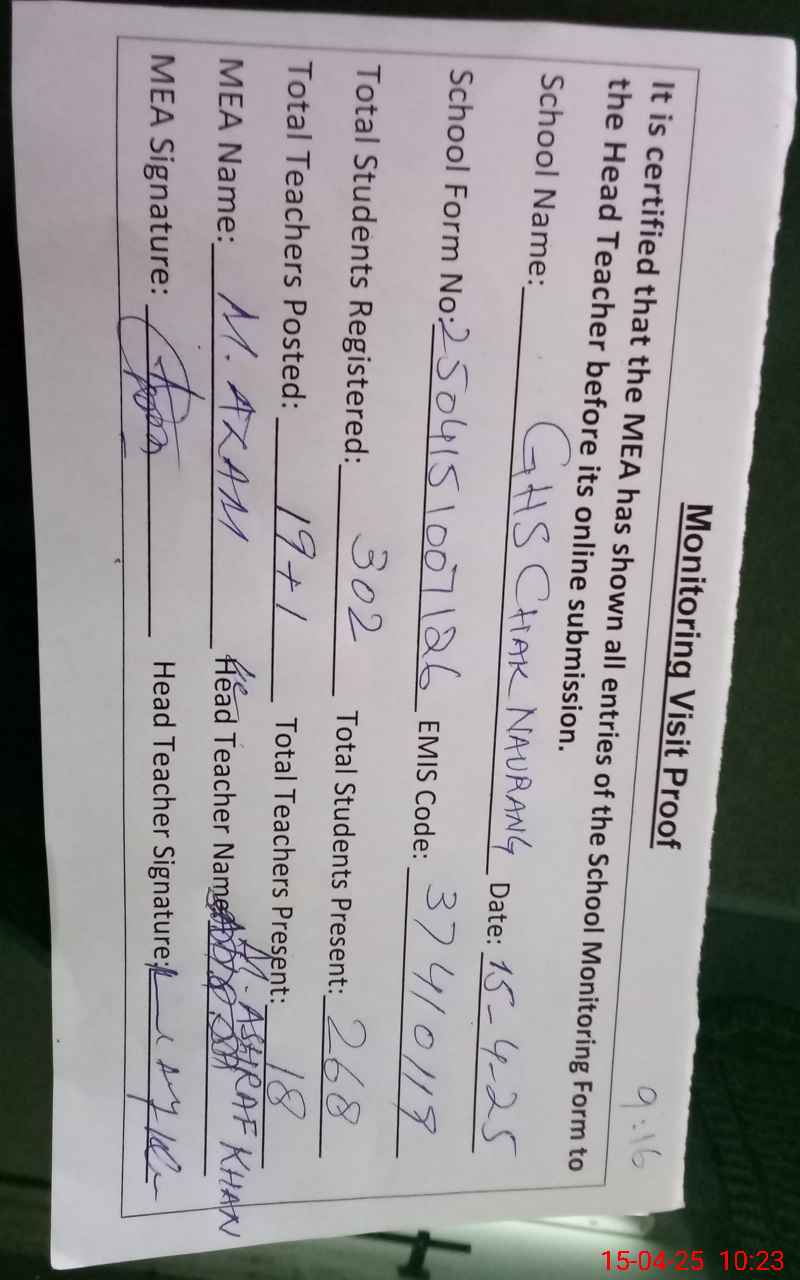 9:16
Monitoring Visit Proof
It is certified that the MEA has shown all entries of the School Monitoring Form to
the Head Teacher before its online submission.
School Name: GHS CHAK NAURANG Date: 15-4-25
School Form No: 2504151007126 EMIS Code: 37410119
Total Students Registered: 302 Total Students Present: 268
Total Teachers Posted: 19+1 Total Teachers Present: 18
MEA Name: M. AZAM Head Teacher Name: M. ASHRAF KHAN
MEA Signature: Head Teacher Signature:
15-04-25 10:23